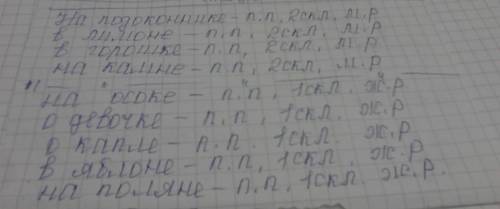 На подоконнике - п.п, 2скл, м.р
в лимоне - п.п, 2скл, м.р
в горошке - п.п, 2скл, м.р
на камне - п.п, 2скл, м.р
на осоке - п.п, 1скл. ж.р
о девочке - п.п, 1скл. ж.р
о капле - п.п. 1скл. ж.р
в яблоне - п.п, 1скл. ж.р
на поляне - п.п, 1скл. ж.р.